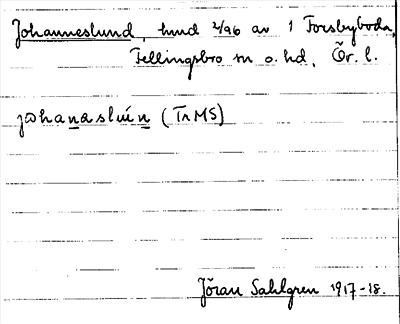 Johanneslund, hmd 2/96 av 1 Forsbyboda,
Fellingsbro sn o. hd, Ör. l.
johanaslun (TrMS)
Jöran Sahlgren 1917-18.